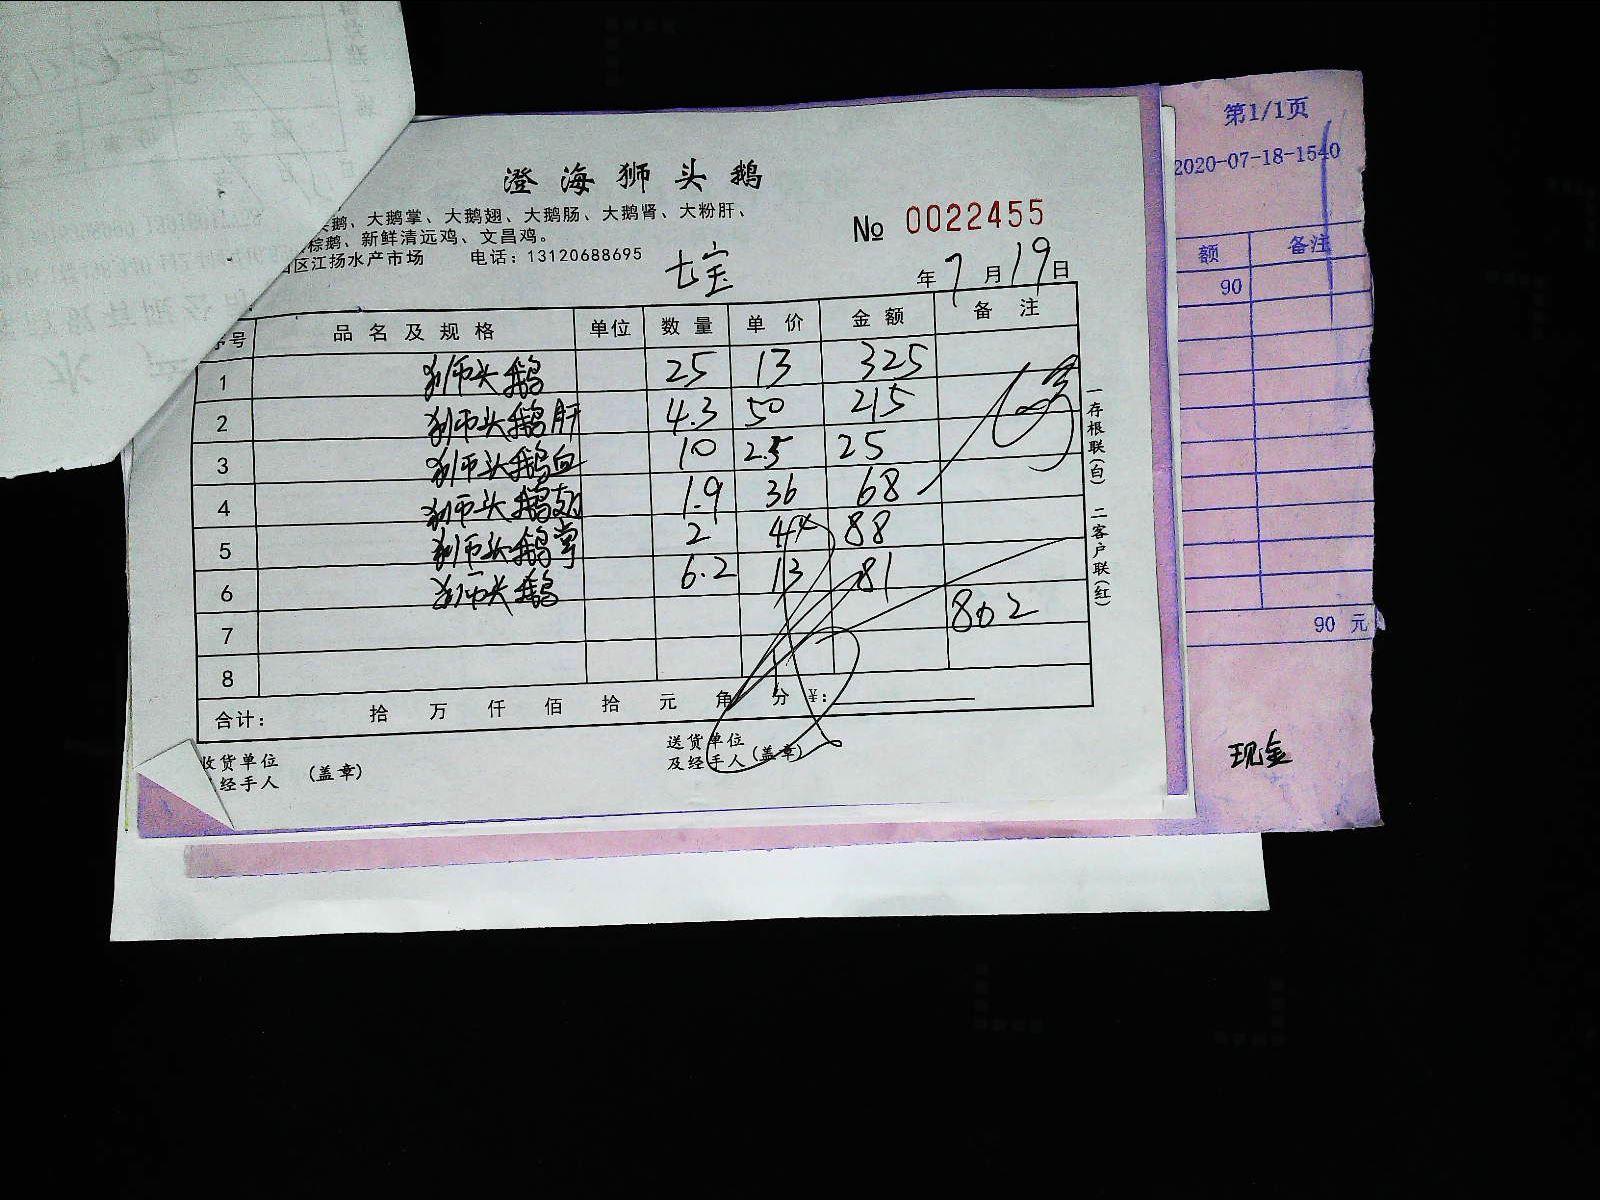 澄海狮头鹅
头鹅、大鹅掌、大鹅翅、大鹅肠、大鹅肾、大粉肝、
棕鹅、新鲜清远鸡、文昌鸡。
区江扬水产市场 电话：13120688695
№ 0022455
七宝
年 7 月 19 日
序号 品名及规格 单位 数量 单价 金额 备注
1 狮头鹅 25 13 325
2 狮头鹅肝 4.3 50 215
3 狮头鹅血 10 2.5 25
4 狮头鹅翅 1.9 36 68
5 狮头鹅掌 2 44 88
6 狮头鹅 6.2 13 81
7 802
8
合计： 拾 万 仟 佰 拾 元 角 分 ¥：
收货单位
及经手人 (盖章)
送货单位
及经手人 (盖章)
一存根联(白) 二客户联(红)
第1/1页
2020-07-18-1540
额 备注
90
90 元
现金